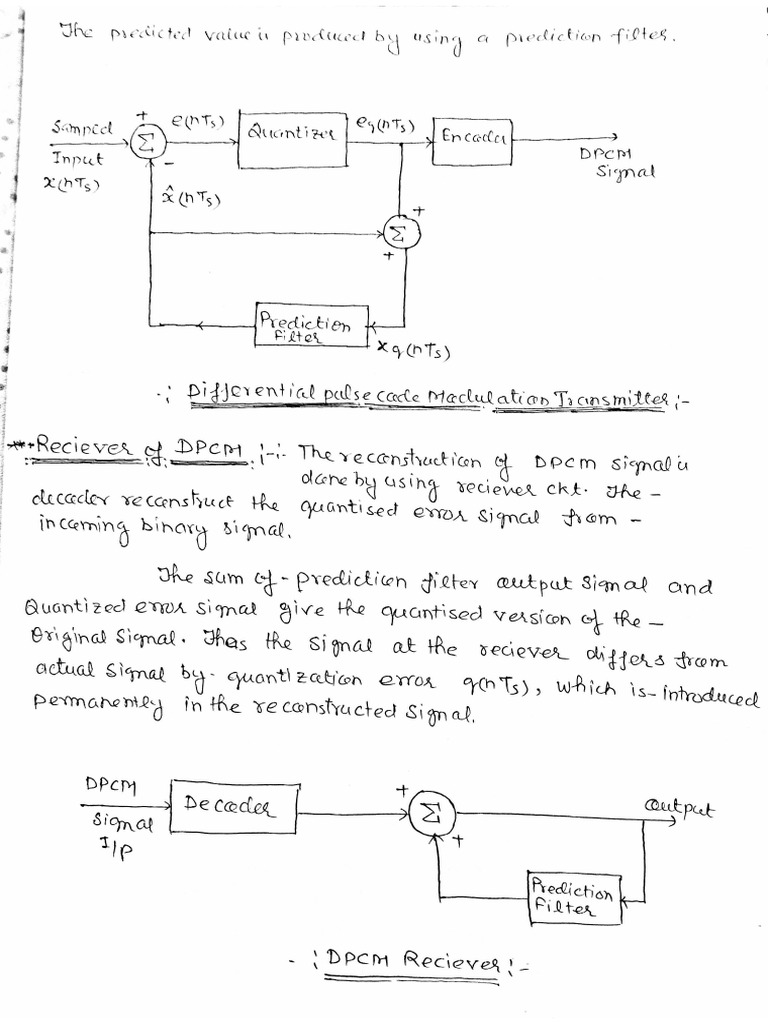 The predicted value is produced by using a prediction filter.
Sampled
Input
x(nTs)
+
Σ
-
e(nTs)
Quantizer
eq(nTs)
Encoder
DPCM
Signal
x̂(nTs)
+
Σ
+
Prediction
filter
xq(nTs)
∴ Differential pulse code Modulation Transmitter :-
*** Reciever of DPCM :-:- The reconstruction of DPCM signal is
done by using reciever ckt. The -
decoder reconstruct the quantised error signal from -
incoming binary signal.
The sum of - prediction filter output signal and
Quantized error signal give the quantised version of the -
Original Signal. Thus the signal at the reciever differs from
actual signal by - quantization error q(nTs), which is - introduced
permanently in the reconstructed signal.
DPCM
Signal
I/P
Decoder
+
Σ
+
output
Prediction
filter
- : DPCM Reciever :-